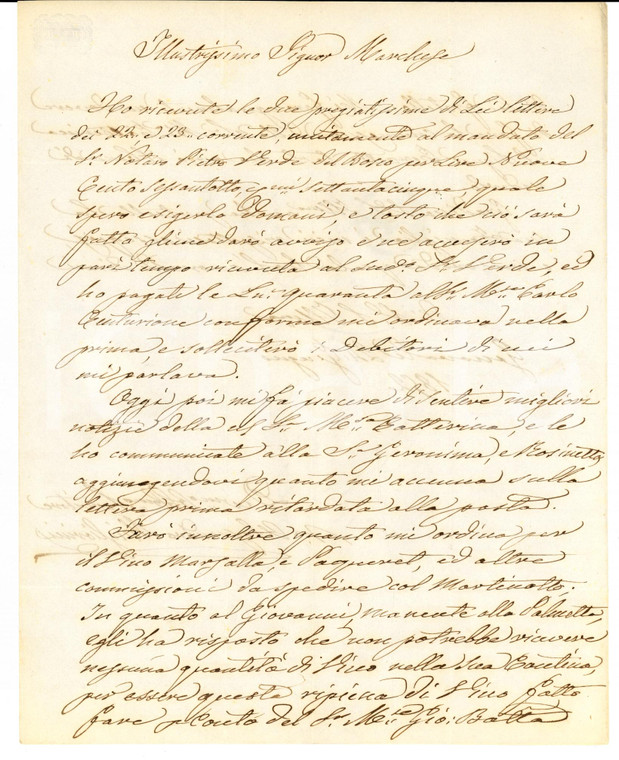 Illustrissimo Signor Marchese
Ho ricevute le due pregiatissime di Lei lettere
dei 22 e 23 corrente, unitamente al mandato del
Sr. Notaro Pietro Verde del Bosco per Lire Nuove
Cento Sessantotto, e cmi settantacinque, quale
spero esigerlo Domani, e tosto che ciò sarà
fatto gliene darò avviso e ne accuserò in
pari tempo ricevuta al sudo. Sr. Verde, ed
ho pagate le Ln. quaranta all' Carlo
Centurione conforme mi ordinava nella
prima e solleciterò i Debitori di cui
mi parlava.
Oggi poi mi fà piacere di sentire migliori
notizie della Sra. Catterina, e le
ho communicate alla Sa. Geronima, e Rosinetta
aggiungendovi quanto mi accenna sulla
lettera prima ritardata alla posta.
Farò innoltre quanto mi ordina per
il Vino Marsalla, e Paqueret, ed altre
commissioni da spedire col Martinotto.
In quanto al Giovanni, manente alla Palmetta,
egli ha risposto che non potrebbe ricevere
nessuna quantità di Vino nella sua Cantina,
per essere questa ripiena di Vino fatto
fare p Conto del Sr. Gio: Batta